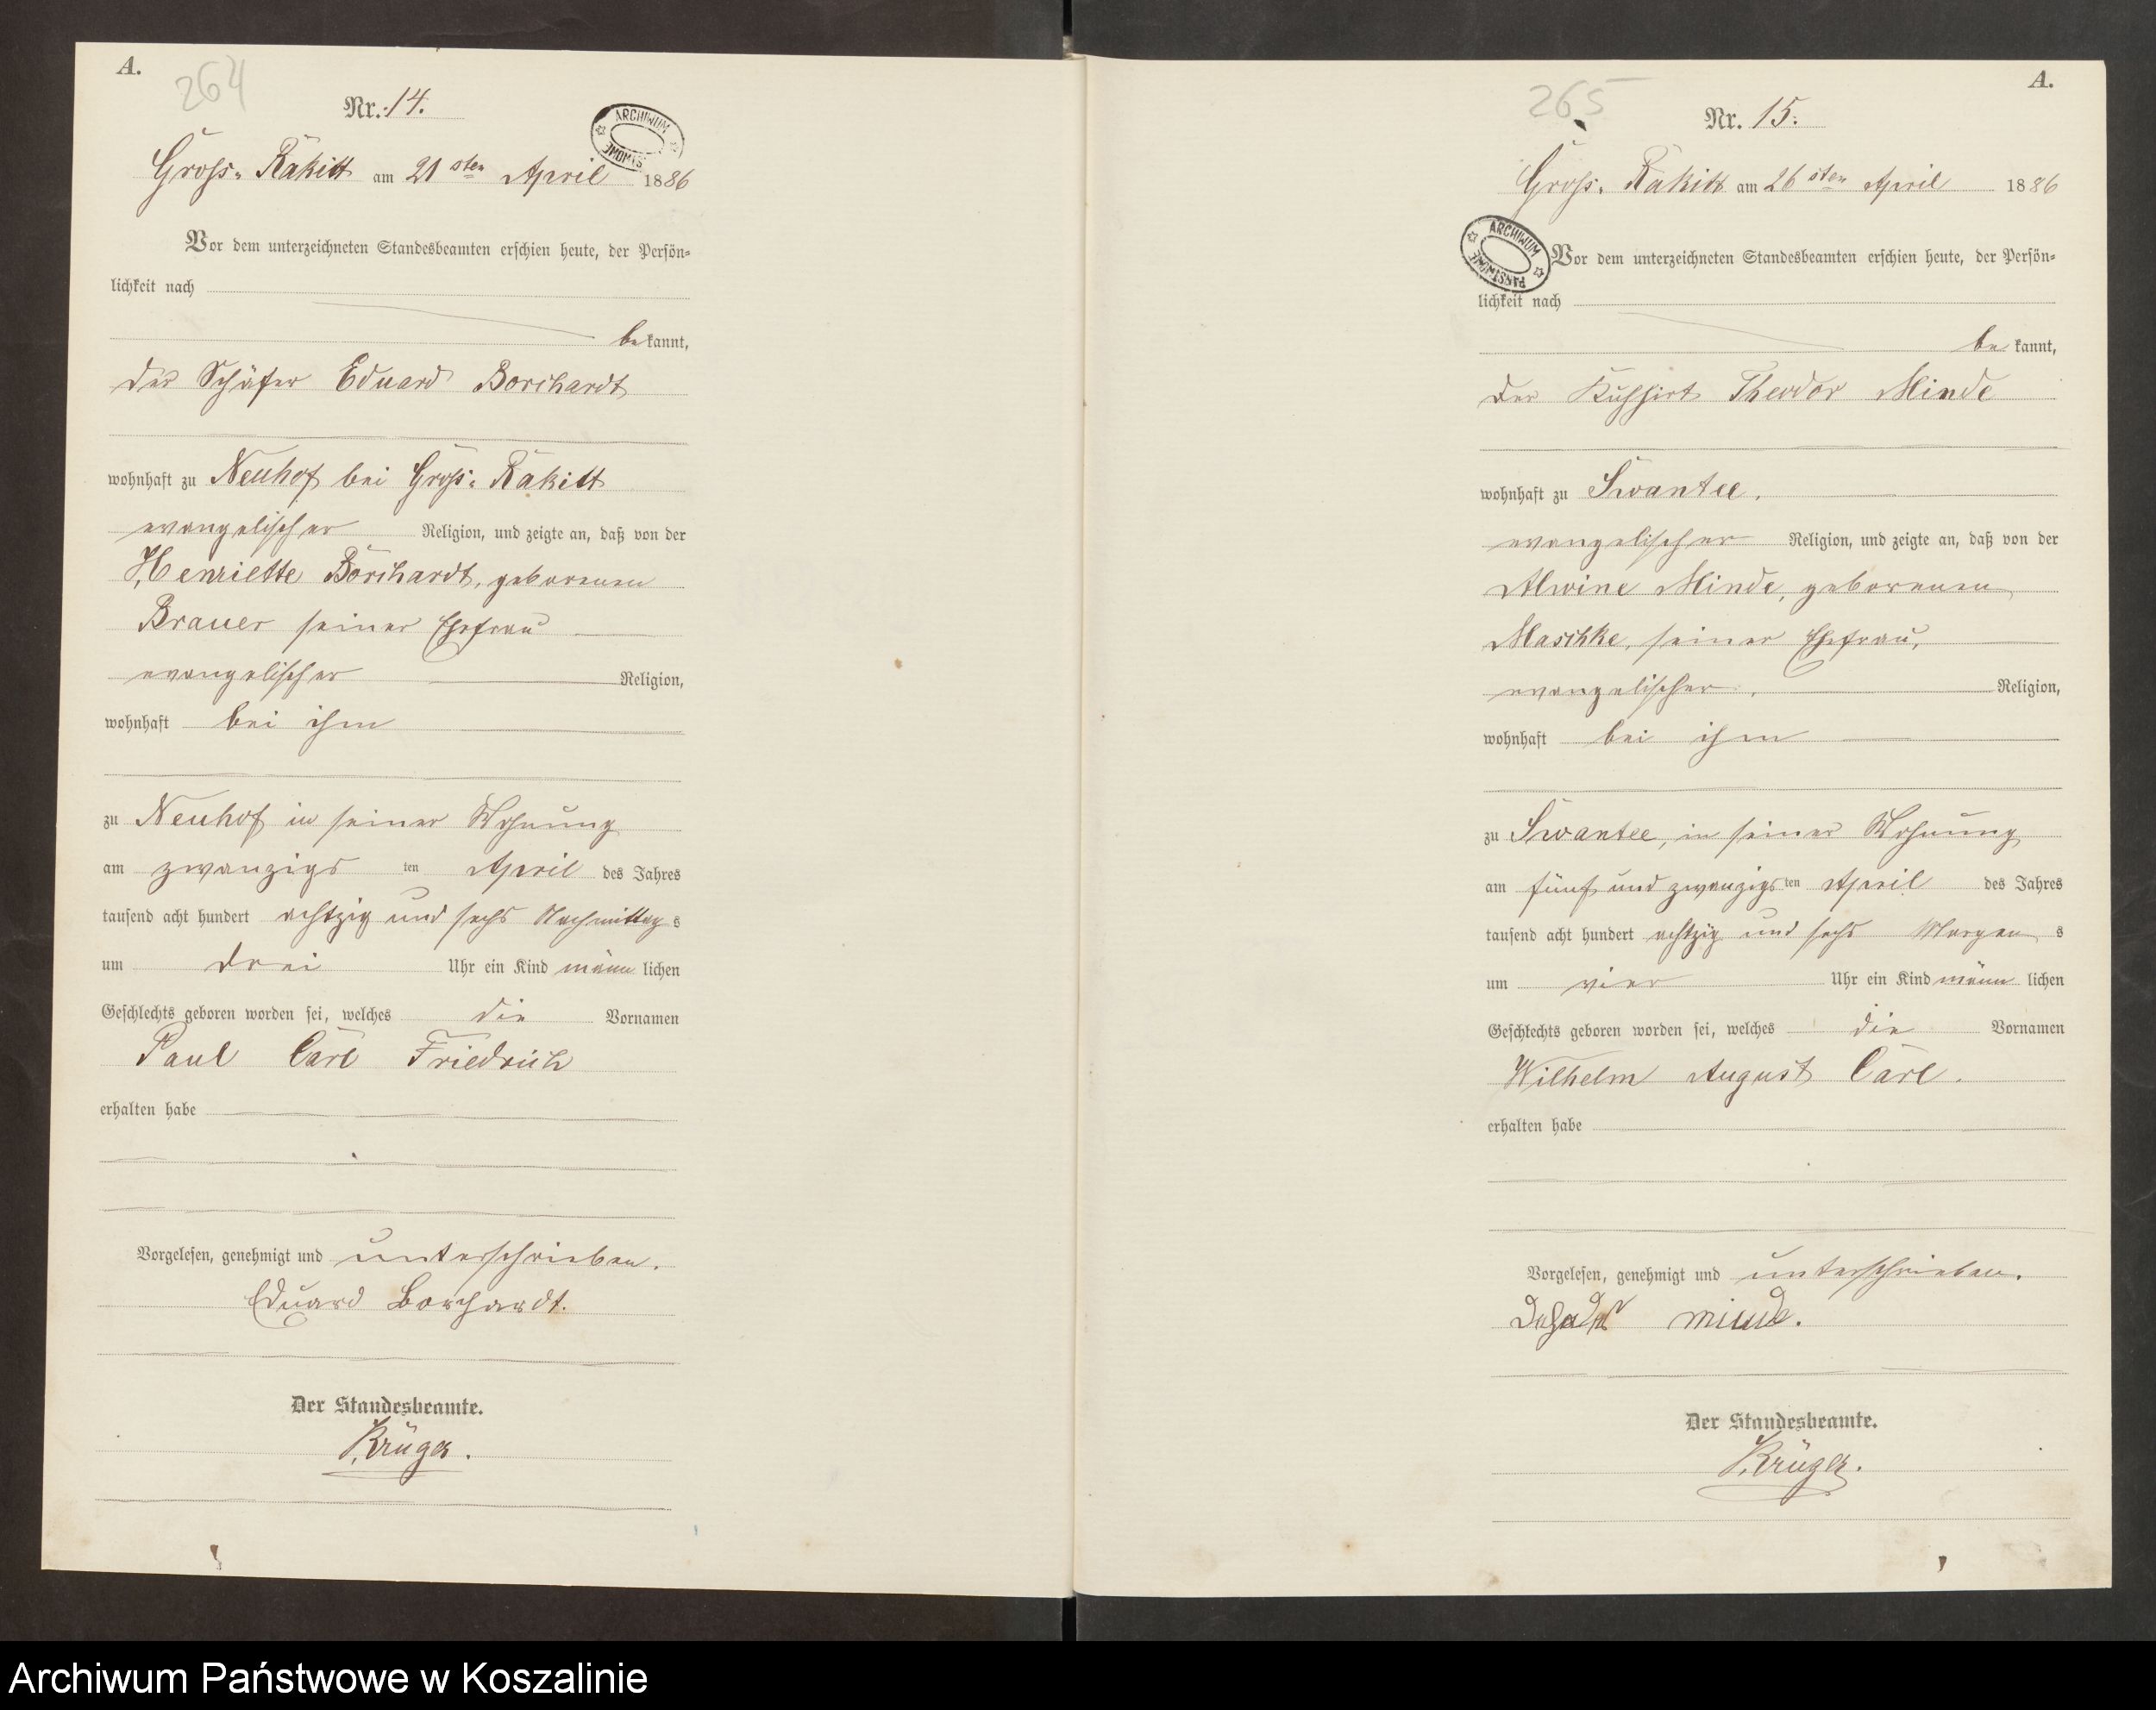 A.
264
Nr. 14.
ARCHIWUM
Gross-Rakitt am 21sten April 1886
Vor dem unterzeichneten Standesbeamten erschien heute, der Persön-
lichkeit nach
bekannt,
der Schäfer Eduard Borchardt
wohnhaft zu Neuhof bei Gross-Rakitt
evangelischer Religion, und zeigte an, daß von der
Henriette Borchardt, geborenen
Brauer seiner Ehefrau
evangelischer Religion,
wohnhaft bei ihm
zu Neuhof in seiner Wohnung
am zwanzigsten April des Jahres
tausend acht hundert achtzig und sechs Nachmittags
um drei Uhr ein Kind männlichen
Geschlechts geboren worden sei, welches die Vornamen
Paul Carl Friedrich
erhalten habe
Vorgelesen, genehmigt und unterschrieben.
Eduard Borchardt.
Der Standesbeamte.
Krüger.
A.
265
Nr. 15.
Gross-Rakitt am 26sten April 1886
ARCHIWUM PAŃSTWOWE
Vor dem unterzeichneten Standesbeamten erschien heute, der Persön-
lichkeit nach
bekannt,
der Kuhhirt Theodor Minde
wohnhaft zu Swantee.
evangelischer Religion, und zeigte an, daß von der
Alwine Minde, geborenen
Maschke, seiner Ehefrau,
evangelischer Religion,
wohnhaft bei ihm
zu Swantee, in seiner Wohnung
am fünf und zwanzigsten April des Jahres
tausend acht hundert achtzig und sechs Morgens
um vier Uhr ein Kind männlichen
Geschlechts geboren worden sei, welches die Vornamen
Wilhelm August Carl.
erhalten habe
Vorgelesen, genehmigt und unterschrieben.
minde.
Der Standesbeamte.
Krüger.
Archiwum Państwowe w Koszalinie